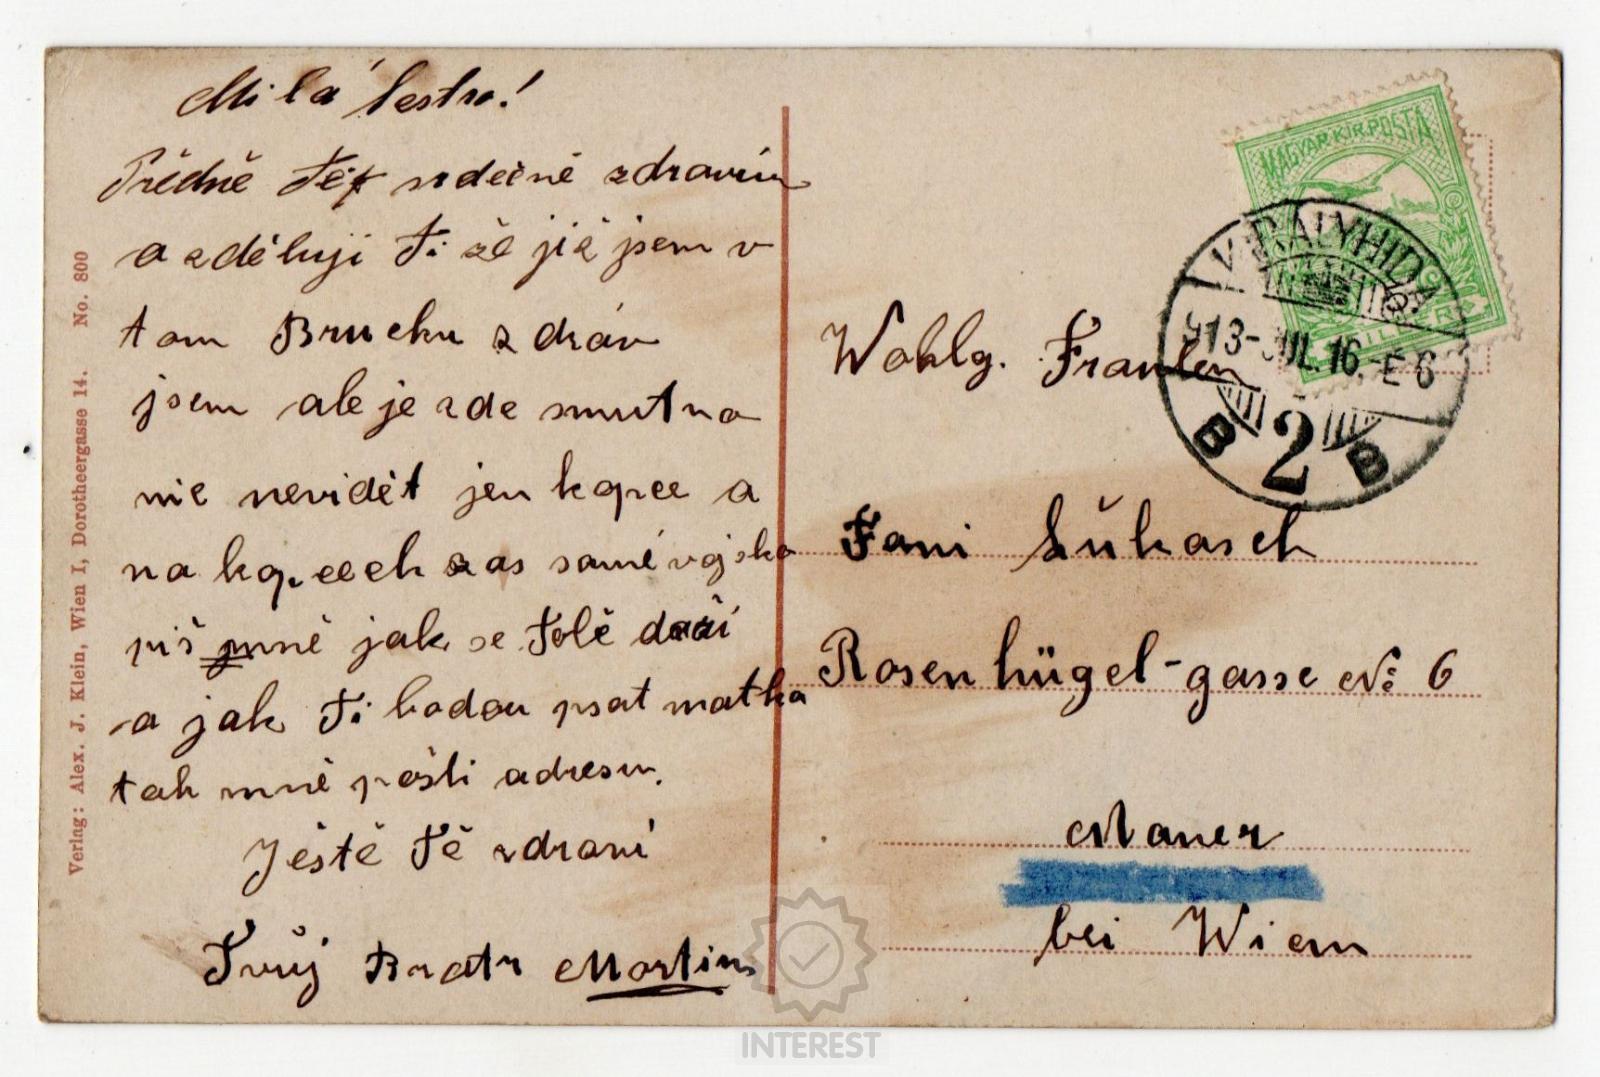 Milá sestro!
Předně Tě srdečně zdravím
a zděluji Ti že již jsem v
tom Brucku zdráv
jsem ale je zde smutno
nic nevidět jen kopce a
na kopcech zas samé vojsko
piš mně jak se Tobě daří
a jak Ti bodou psat matka
tak mně pošli adresu.
Ještě Tě zdraví
Tvůj Bratr Martin
Verlag: Alex. J. Klein, Wien I, Dorotheergasse 14. No. 800
MAGYAR KIR. POSTA
KIRÁLYHIDA
913-JUL.16.-E6
B 2 B
Wohlg. Fraulen
Fani Lukasch
Rosenhügel-gasse No 6
Mauer
bei Wiem
INTEREST